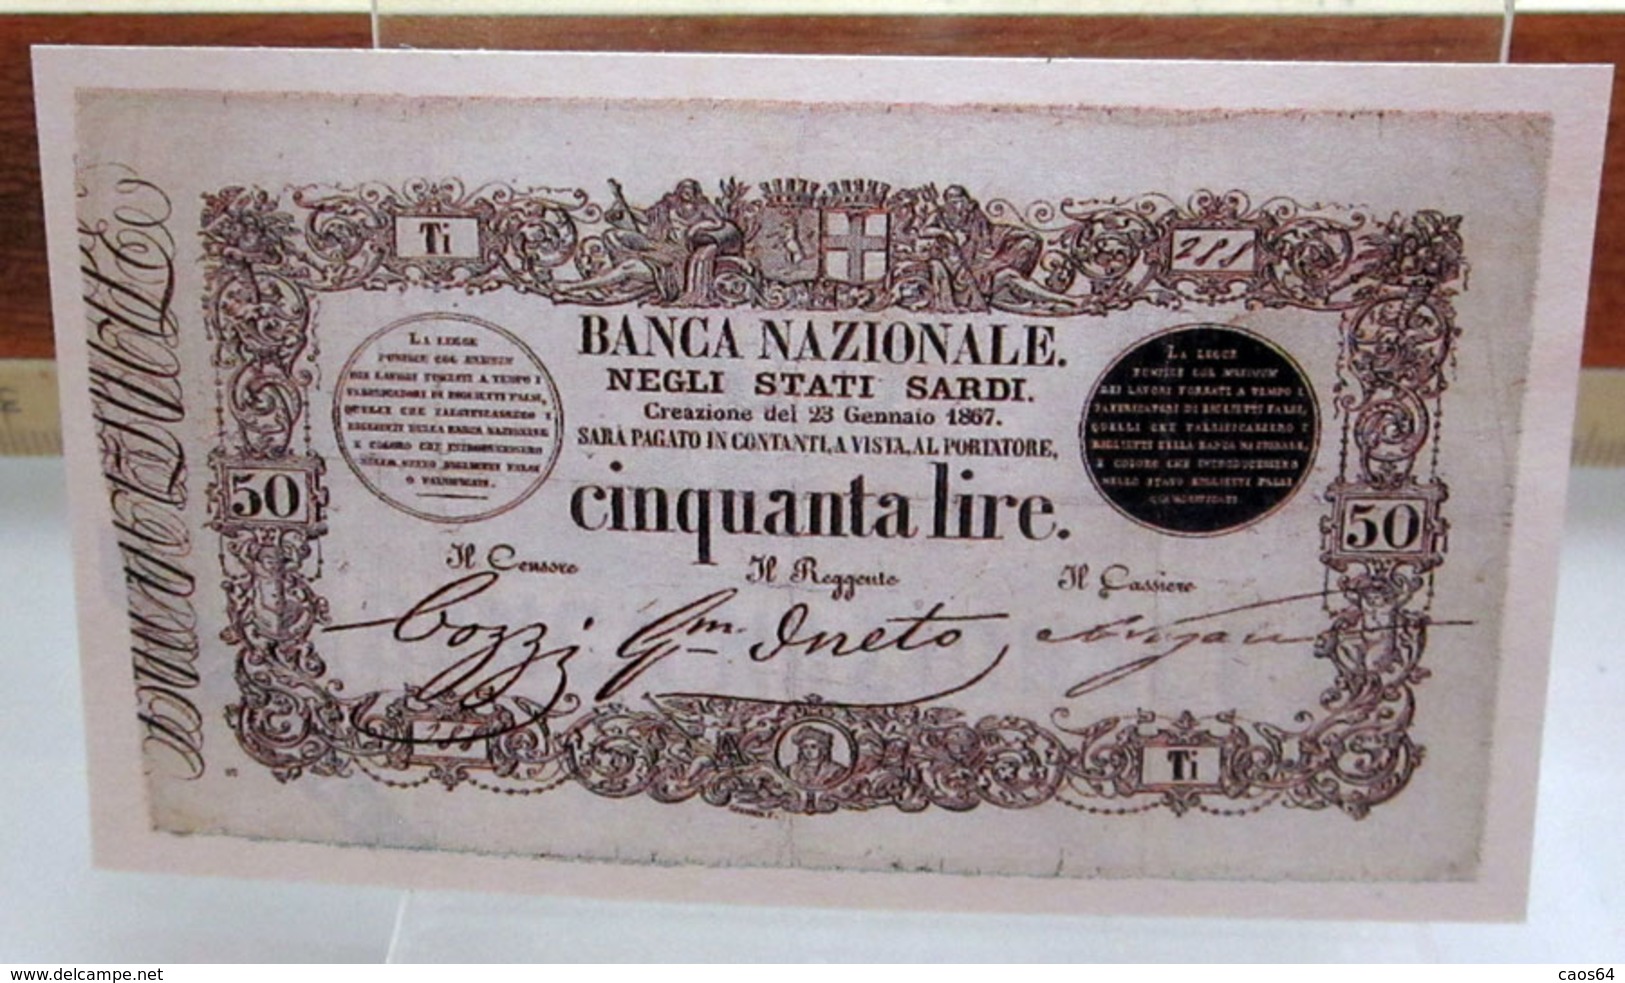 Ti
288
BANCA NAZIONALE.
NEGLI STATI SARDI.
Creazione del 23 Gennaio 1867.
SARÀ PAGATO IN CONTANTI, A VISTA, AL PORTATORE,
cinquanta lire.
LA LEGGE
PUNISCE COL MAXIMUM
DEI LAVORI FORZATI A TEMPO I
FABBRICATORI DI BIGLIETTI FALSI,
QUELLI CHE FALSIFICASSERO I
BIGLIETTI DELLA BANCA NAZIONALE,
E COLORO CHE INTRODUCESSERO
NELLO STATO BIGLIETTI FALSI
O FALSIFICATI.
LA LEGGE
PUNISCE COL MAXIMUM
DEI LAVORI FORZATI A TEMPO I
FABBRICATORI DI BIGLIETTI FALSI,
QUELLI CHE FALSIFICASSERO I
BIGLIETTI DELLA BANCA NAZIONALE,
E COLORO CHE INTRODUCESSERO
NELLO STATO BIGLIETTI FALSI
O FALSIFICATI
50
50
Il Censore
Il Reggente
Il Cassiere
Cozzi
Ti
www.delcampe.net
caos64